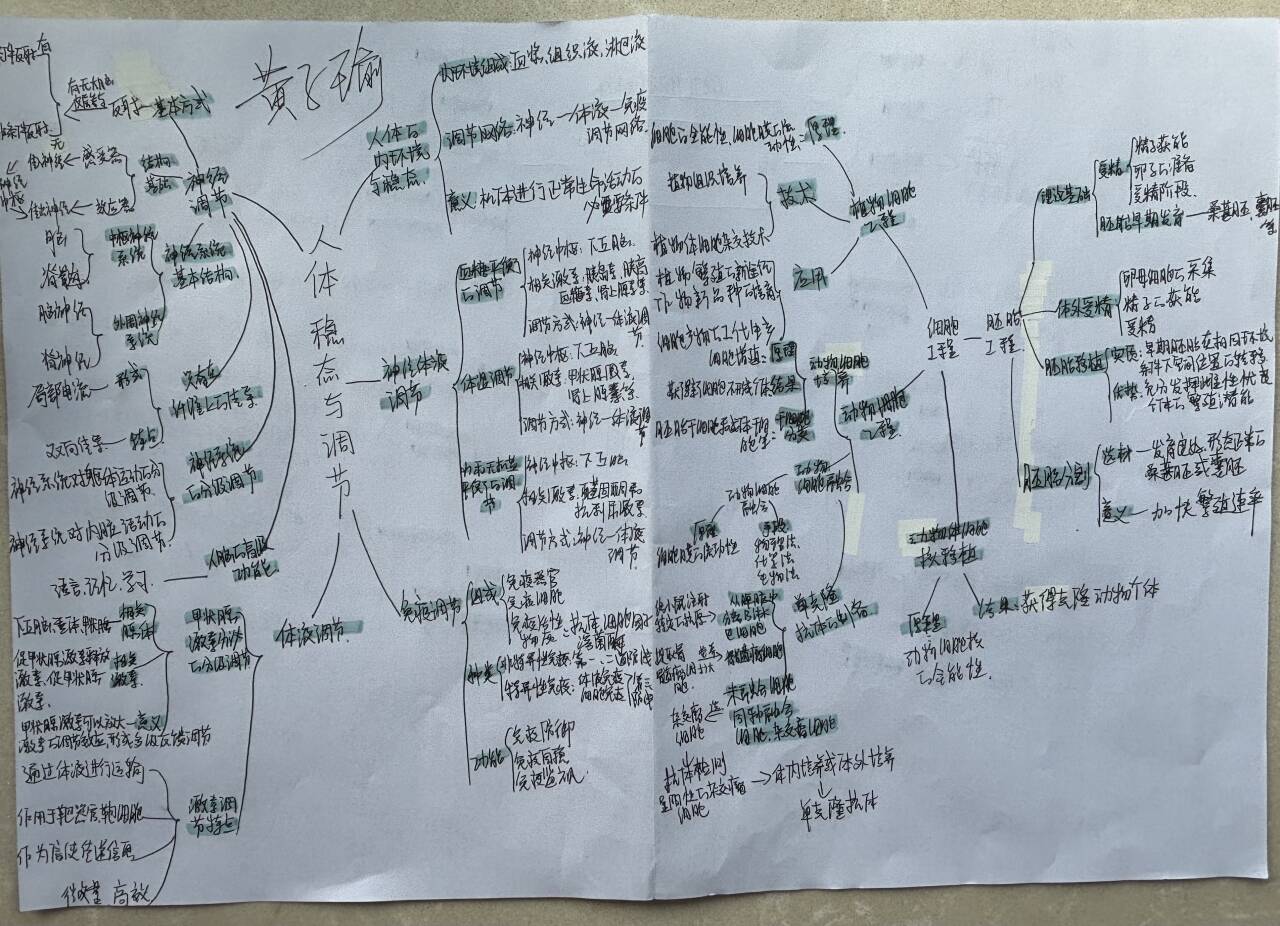 黄子瑜
人体稳态与调节
人体的
内环境
与稳态
内环境组成:血浆、组织液、淋巴液
调节网络:神经—体液—免疫
调节网络
意义:机体进行正常生命活动的
必要条件
神经
调节
基本方式
反射
有无大脑
皮层参与
有
无
结构
基础
感受器
传入神经
神经
中枢
传出神经
效应器
神经系统
基本结构
中枢神经
系统
脑
脊髓
外周神经
系统
脑神经
脊神经
兴奋在
纤维上的传导
形式
局部电流
特点
双向传导
神经系统
的分级调节
神经系统对躯体运动的分
级调节
神经系统对内脏活动的
分级调节
人脑的高级
功能
语言、记忆、学习
神经体液
调节
血糖平衡
的调节
神经中枢:下丘脑
相关激素:胰岛素、胰高
血糖素、肾上腺素等
调节方式:神经—体液调
节
体温调节
神经中枢:下丘脑
相关激素:甲状腺激素、
肾上腺素等
调节方式:神经—体液调
节
水和无机盐
平衡的调
节
神经中枢:下丘脑
相关激素:醛固酮和
抗利尿激素
调节方式:神经—体液
调节
免疫调节
组成
免疫器官
免疫细胞
免疫活性
物质
抗体、细胞因子
溶菌酶
种类
非特异性免疫:第一、二道防线
特异性免疫:体液免疫
细胞免疫
第三
道防线
功能
免疫防御
免疫自稳
免疫监视
体液调节
甲状腺
激素分泌
的分级调节
相关
腺体
下丘脑、垂体、甲状腺
相关
激素
促甲状腺激素释放
激素、促甲状腺
激素
意义
甲状腺激素可以放大
激素的调节效应,形成多级反馈调节
激素调
节特点
通过体液进行运输
作用于靶器官、靶细胞
作为信使传递信息
微量 高效
细胞
工程
植物细胞
工程
原理
细胞的全能性、细胞膜的流
动性
技术
植物组织培养
植物体细胞杂交技术
应用
植物繁殖的新途径
作物新品种的培育
细胞产物的工厂化生产
动物细胞
工程
动物细胞
培养
原理
细胞增殖
结果
干细胞
分类
动物
细胞融合
动物细胞
融合
原理
细胞膜的流动性
手段
物理法
化学法
生物法
单克隆
抗体的制备
给小鼠注射
特定的抗原
从脾脏中
杂交瘤
细胞
同种融合
细胞、杂交瘤细胞
抗体检测
呈阳性的杂交瘤
细胞
体内培养或体外培养
单克隆抗体
动物体细胞
核移植
原理
动物细胞核
的全能性
结果:获得克隆动物个体
胚胎
工程
理论基础
受精
精子获能
卵子的准备
受精阶段
胚胎早期发育
桑葚胚 囊胚
等
体外受精
卵母细胞的采集
精子的获能
受精
胚胎移植
实质:早期胚胎在相同环境
条件下空间位置的转移
优势:充分发挥雌性优良
个体的繁殖潜能
胚胎分割
选材
发育良好、形态正常的
桑葚胚或囊胚
意义
加快繁殖速率